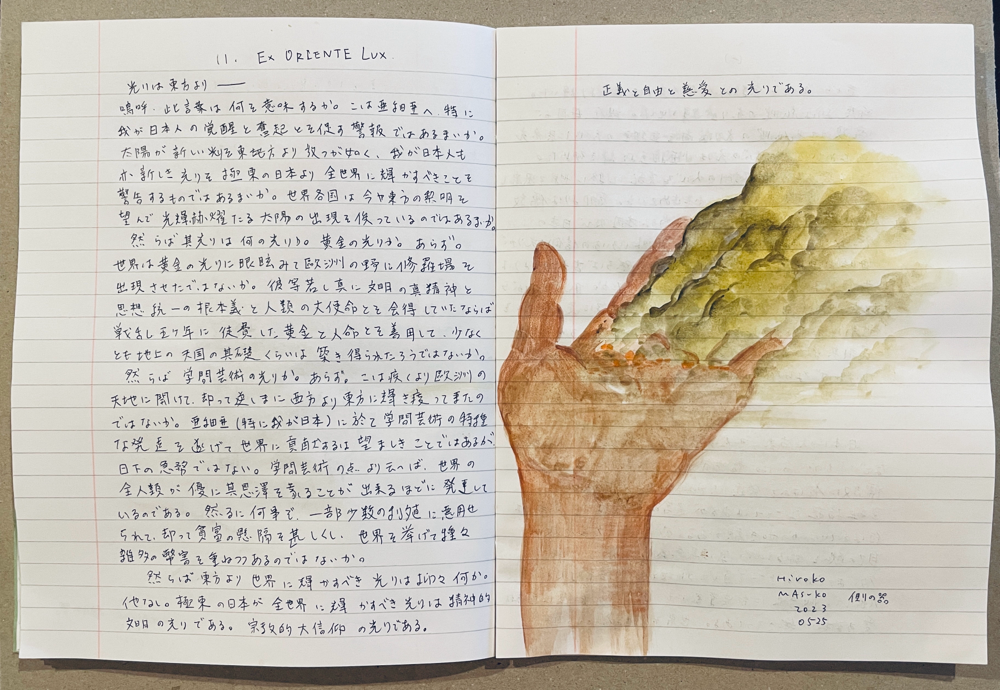 11. EX ORIENTE LUX.
光りは東方より——
嗚呼、此言葉は何を意味するか。こは亜細亜へ特に
我が日本人の覚醒と奮起とを促す警報ではあるまいか。
太陽が新しい光を東地方より放つが如く、我が日本人も
亦新しき光りを極東の日本より全世界に輝かすべきことを
警告するものではあるまいか。世界各国は今や東方の黎明を
望んで光輝赫燿たる太陽の出現を俟っているのではあるまいか。
然らば其光りは何の光りか。黄金の光りか。あらず。
世界は黄金の光りに眼眩みて欧洲の野に修羅場を
出現させたではないか。彼等若し真に文明の真精神と
思想統一の根本義と人類の大使命とを会得していたならば
戦乱五ヶ年に徒費した黄金と人命とを善用して、少なく
とも地上の天国の基礎くらいは築き得られたろうではないか。
然らば学問芸術の光りか。あらず。こは疾くより欧洲の
天地に開けて、却って逆しまに西方より東方に輝き渡って来たの
ではないか。亜細亜(特に我が日本)に於て学問芸術の特種
な発達を遂げて世界に貢献するは望ましきことではあるが、
目下の急務ではない。学問芸術の点より云へば、世界の
全人類が優に其恩澤を蒙ることが出来るほどに発達して
いるのである。然るに何事ぞ、一部少数の利殖に悪用せ
られて、却って貧富の懸隔を甚しくし、世界を挙げて種々
雑多の弊害を重ねつつあるのではないか。
然らば東方より世界に輝かすべき光りは抑々何か。
他なし。極東の日本が全世界に輝かすべき光りは精神的
文明の光りである。宗教的大信仰の光りである。
正義と自由と慈愛との光りである。
Hiroko
MAS-KO
2023
0525